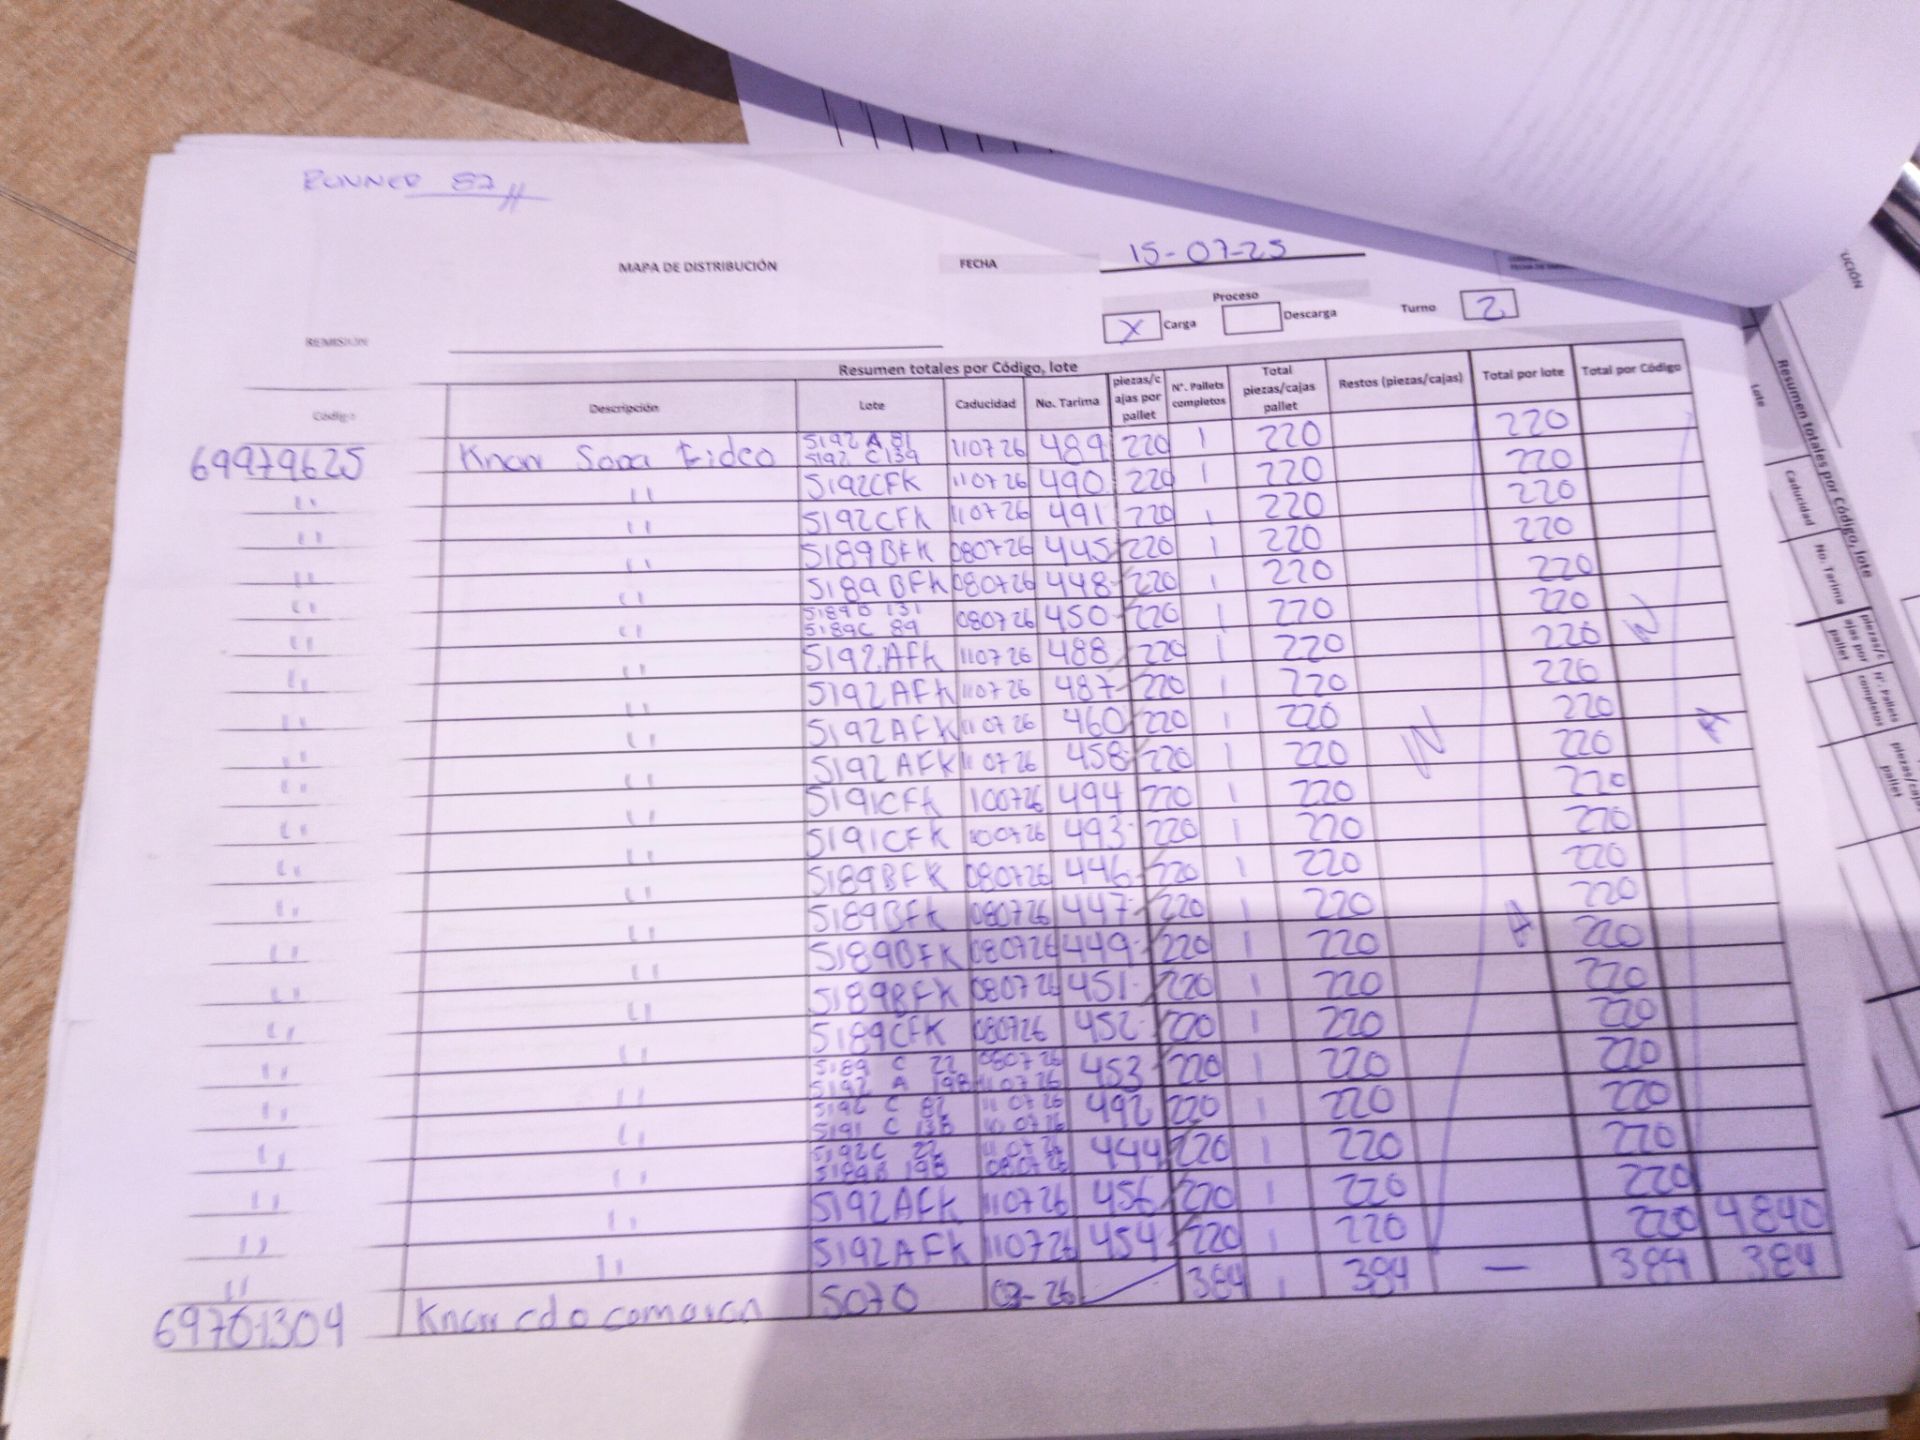 RUNNER 82
MAPA DE DISTRIBUCIÓN FECHA 15-07-25
Proceso
X Carga Descarga Turno 2
REMISIÓN
Resumen totales por Código, lote
Código Descripción Lote Caducidad No. Tarima piezas/cajas por pallet N°. Pallets completos Total piezas/cajas pallet Restos (piezas/cajas) Total por lote Total por Código
69979625 Knorr Sopa Fideo 5192 A 81 5192 C139 110726 489 220 1 220 220
" " 5192CFK 110726 490 220 1 220 220
" " 5192CFK 110726 491 220 1 220 220
" " 5189BFK 080726 445 220 1 220 220
" " 5189BFK 080726 448 220 1 220 220
" " 5189B 131 5189C 89 080726 450 220 1 220 220
" " 5192AFK 110726 488 220 1 220 220
" " 5192AFK 110726 487 220 1 220 220
" " 5192AFK 110726 460 220 1 220 220
" " 5192AFK 110726 458 220 1 220 220
" " 5191CFK 100726 494 220 1 220 220
" " 5191CFK 100726 493 220 1 220 220
" " 5189BFK 080726 446 220 1 220 220
" " 5189BFK 080726 447 220 1 220 220
" " 5189BFK 080726 449 220 1 220 220
" " 5189BFK 080726 451 220 1 220 220
" " 5189CFK 080726 452 220 1 220 220
" " 5189 C 22 080726 5192 A 198 110726 453 220 1 220 220
" " 5192 C 82 110726 5191 C 138 100726 492 220 1 220 220
" " 5192C 22 110726 5189B 198 080726 444 220 1 220 220
" " 5192AFK 110726 456 220 1 220 220
" " 5192AFK 110726 454 220 1 220 220 4840
69701304 Knorr cdo camaron 5070 03-26 384 1 384 — 384 384
N A
N A
UCIÓN
Resumen totales por Código, lote
Lote
Caducidad
No. Tarima
piezas/cajas por pallet
N°. Pallets completos
piezas/cajas pallet